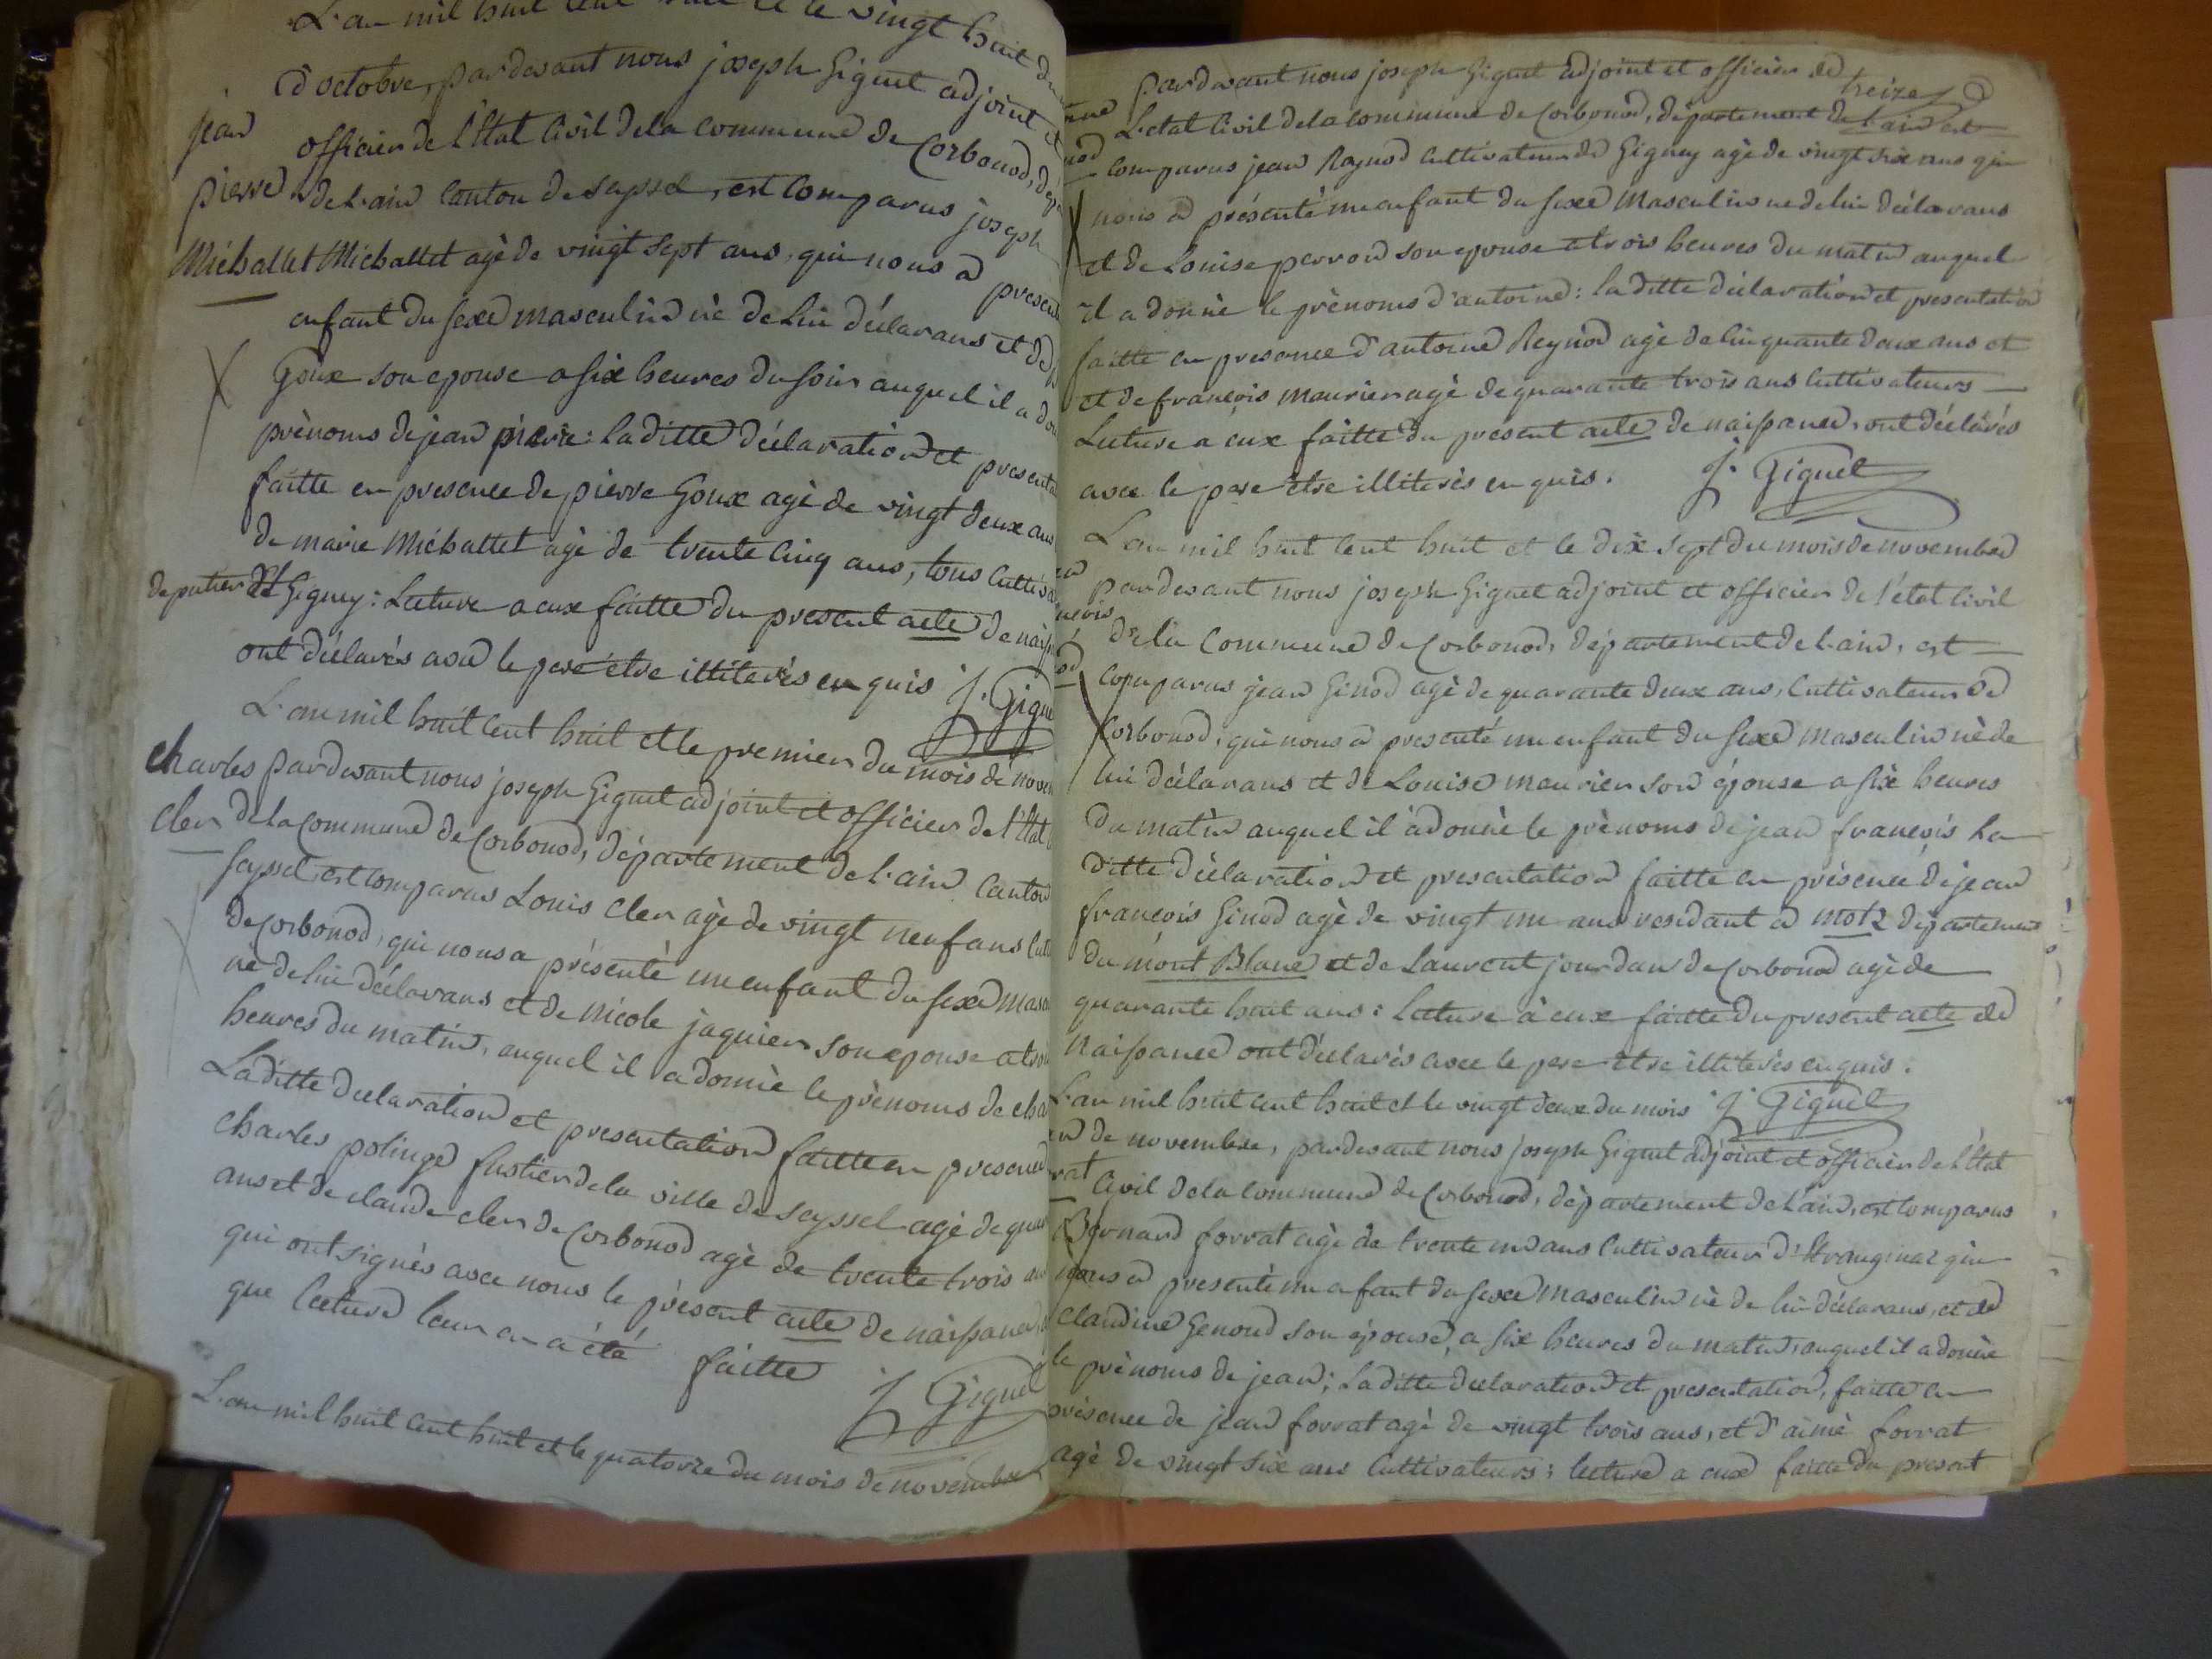 L'an mil huit cent huit et le vingt huit du
d'octobre, pardevant nous joseph Giguet adjoint et
officier de l'Etat Civil de la commune de Corbonod, dépa
de L'ain Canton de Seyssel, est comparus joseph
jean
pierre
Michallet
Michallet agè de vingt sept ans, qui nous a present
enfant du sexe masculin nè de lui déclarans et de
Goux son epouse a six heures du soir auquel il a don
prènoms de jean pierre: la ditte déclaration et presenta
faitte en presence de pierre Goux agè de vingt deux ans
de marie Michallet agè de trente cinq ans, tous cultiva
de Gignez: Lecture a eux faitte du present acte de naiss
ont déclarés avec le pere être illiterés enquis J. Gigue
L'an mil huit cent huit et le premier du mois de novem
charles
cler
pardevant nous joseph Giguet adjoint et officier de l'Etat
de la commune de Corbonod, département de L'ain Canton
Seyssel, est comparus Louis cler agè de vingt neuf ans cult
de Corbonod, qui nous a présentè un enfant du sexe mascu
nè de lui déclarans et de Nicole jaquier son epouse a
heures du matin, auquel il a donnè le prènoms de cha
La ditte declaration et presentation faitte en presence
charles polinge fustier de la ville de seyssel agè de quar
ans et de claude cler de Corbonod agè de trente trois ans
qui ont signès avec nous le present acte de naissance,
que lecture leur en a étè faitte J Giguet
L'an mil huit cent huit et le quatorze du mois de novembre
treize
pardevant nous joseph Giguet adjoint et officier de
L'etat Civil de la commune de Corbonod, département de L'ain est
comparus jean Reynod cultivateur de Gignez agè de vingt six ans qui
nous a présentè un enfant du sexe Masculin nè de lui déclarans
et de Louise perron son epouse a trois heures du matin auquel
il a donnè le prènoms d'antoine: la ditte déclaration et presentation
faitte en presence d'antoine Reynod agè de cinquante deux ans et
et de francois maurier agè de quarante trois ans Cultivateurs
Lecture a eux faitte du present acte de naissance, ont déclarés
avec le pere être illiterés enquis. J. Giguet
L'an mil huit cent huit et le dix sept du mois de novembre
pardevant nous joseph Giguet adjoint et officier de l'état Civil
de la Commune de Corbonod, département de L'ain, est
comparus jean Ginod agè de quarante deux ans, Cultivateur de
Corbonod, qui nous a presentè un enfant du sexe masculin nè de
lui déclarans et de Louise maurier son épouse a six heures
du matin auquel il a donnè le prènoms de jean francois La
ditte déclaration et presentation faitte en présence de jean
francois Ginod agè de vingt un ans residant a motz département
du mont Blanc et de Laurent jourdan de Corbonod agè de
quarante huit ans: lecture à eux faitte du present acte de
Naissance ont déclarés avec le pere être illiterés enquis.
L'an mil huit cent huit et le vingt deux du mois J Giguet
de novembre, pardevant nous joseph Giguet adjoint et officier de l'Etat
Civil de la commune de Corbonod, département de L'ain, est comparus
Bernard forrat agè de trente un ans Cultivateur d' qui
nous a presentè un enfant du sexe masculin nè de lui déclarans, et de
Claudine Genoud son épouse, a six heures du matin, auquel il a donnè
le prènoms de jean; La ditte declaration et presentation, faitte en
présence de jean forrat agè de vingt trois ans, et d'aimè forrat
agè de vingt six ans Cultivateurs; lecture a eux faitte du present